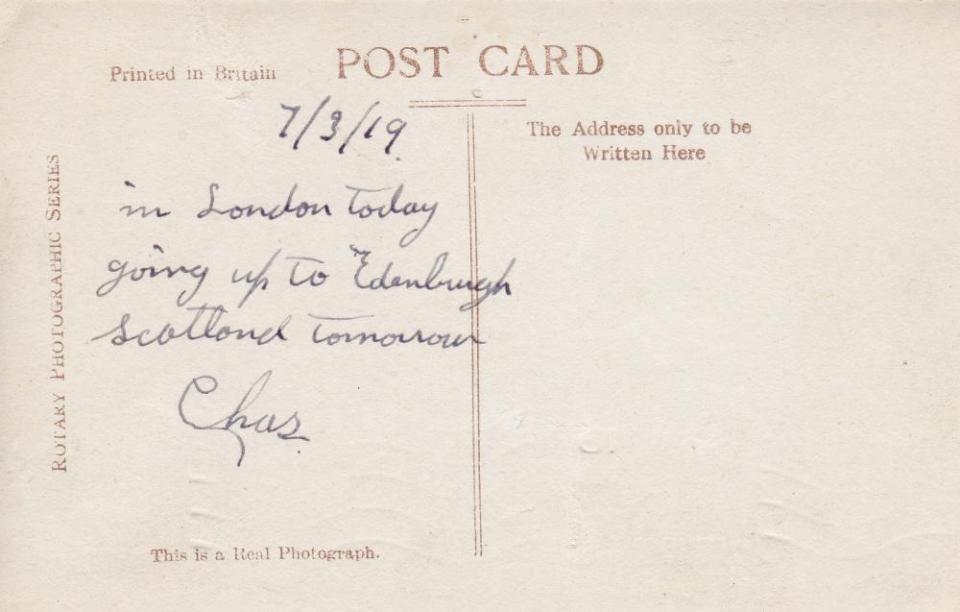 Printed in Britain
POST CARD
7/3/19.
The Address only to be
Written Here
in London today
going up to Edenburgh
Scotland tomorrow
Chas.
ROTARY PHOTOGRAPHIC SERIES
This is a Real Photograph.